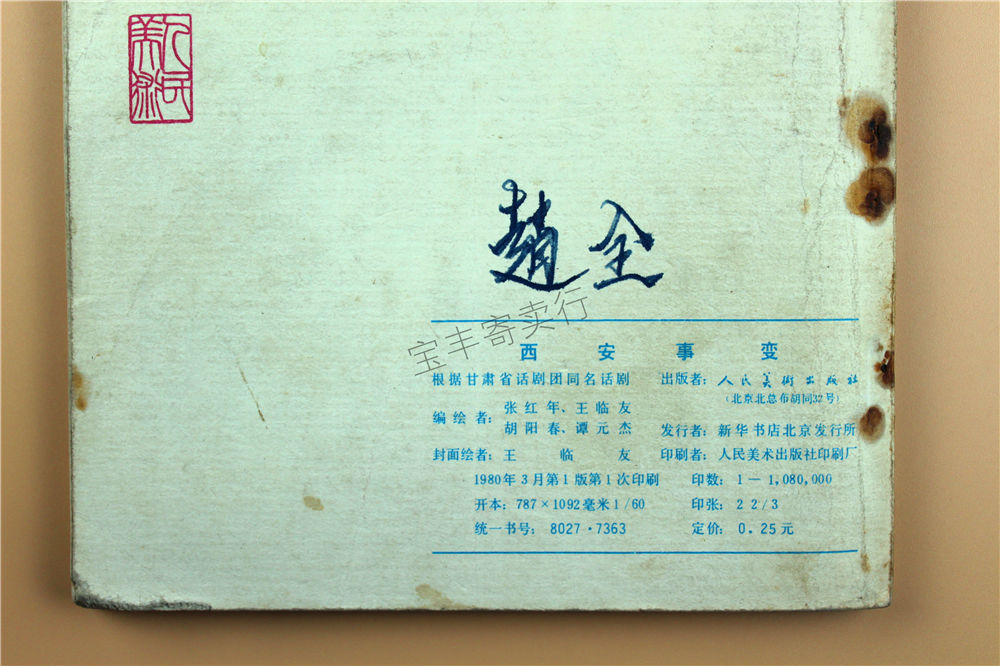 人民美术
趙全
宝丰寄卖行
西安事变
根据甘肃省话剧团同名话剧
编绘者：张红年、王临友
胡阳春、谭元杰
封面绘者：王临友
1980年3月第1版第1次印刷
开本：787×1092毫米1/60
统一书号：8027·7363
出版者：人民美術出版社
（北京北总布胡同32号）
发行者：新华书店北京发行所
印刷者：人民美术出版社印刷厂
印数：1－1,080,000
印张：2 2/3
定价：0.25元